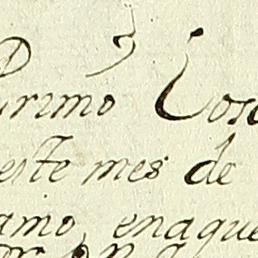 Primo Cos
este mes de
amo, enaque